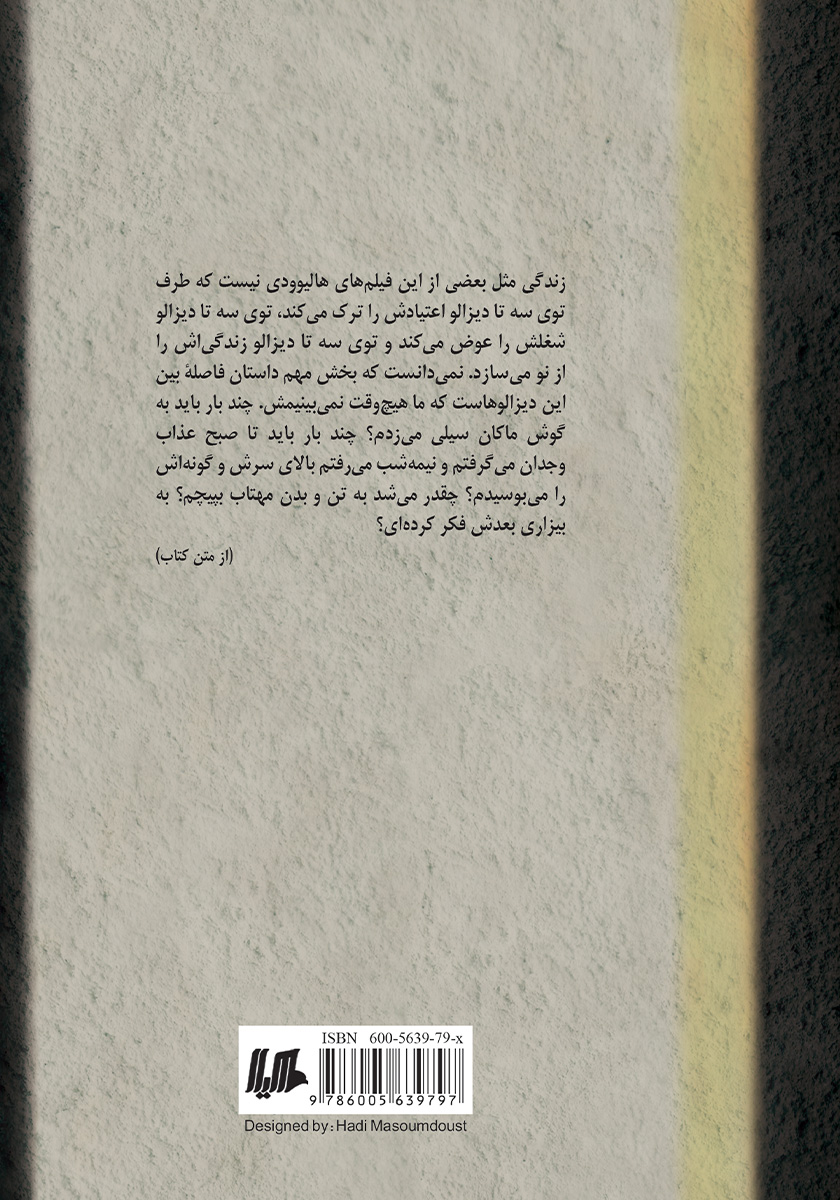 زندگی مثل بعضی از این فیلم‌های هالیوودی نیست که طرف
توی سه تا دیزالو اعتیادش را ترک می‌کند، توی سه تا دیزالو
شغلش را عوض می‌کند و توی سه تا دیزالو زندگی‌اش را
از نو می‌سازد. نمی‌دانست که بخش مهم داستان فاصلهٔ بین
این دیزالوهاست که ما هیچ‌وقت نمی‌بینیمش. چند بار باید به
گوش ماکان سیلی می‌زدم؟ چند بار باید تا صبح عذاب
وجدان می‌گرفتم و نیمه‌شب می‌رفتم بالای سرش و گونه‌اش
را می‌بوسیدم؟ چقدر می‌شد به تن و بدن مهتاب بپیچم؟ به
بیزاری بعدش فکر کرده‌ای؟
(از متن کتاب)
ISBN 600-5639-79-x
هیلا
9 786005 639797
Designed by: Hadi Masoumdoust